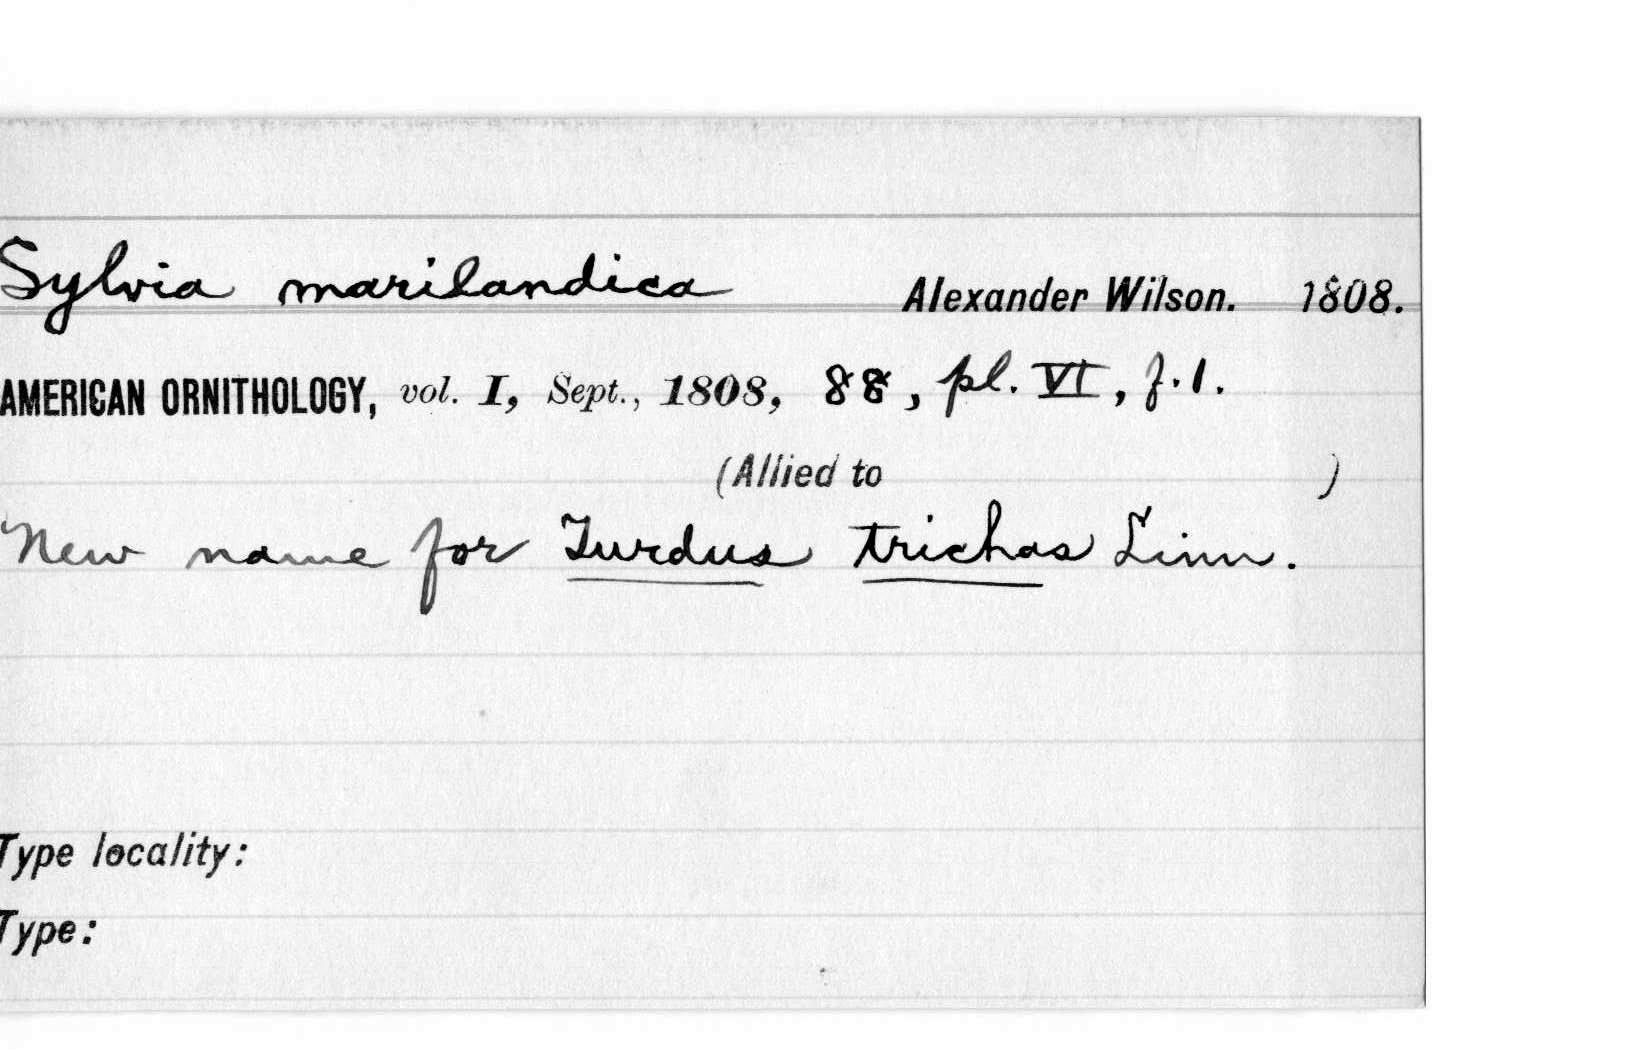 Sylvia marilandica Alexander Wilson. 1808.
AMERICAN ORNITHOLOGY, vol. I, Sept., 1808, 88, pl. VI, f. 1.
(Allied to )
New name for Turdus trichas Linn.
Type locality:
Type: